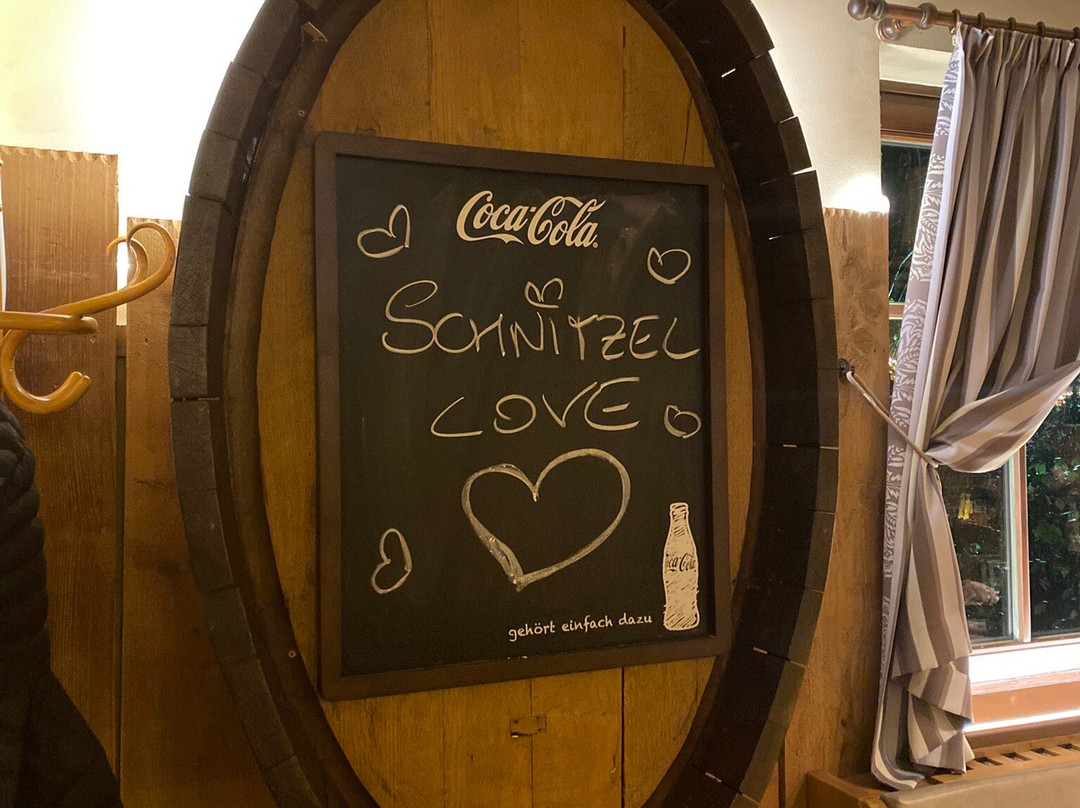 Coca-Cola
SCHNITZEL
LOVE
Coca-Cola
gehört einfach dazu